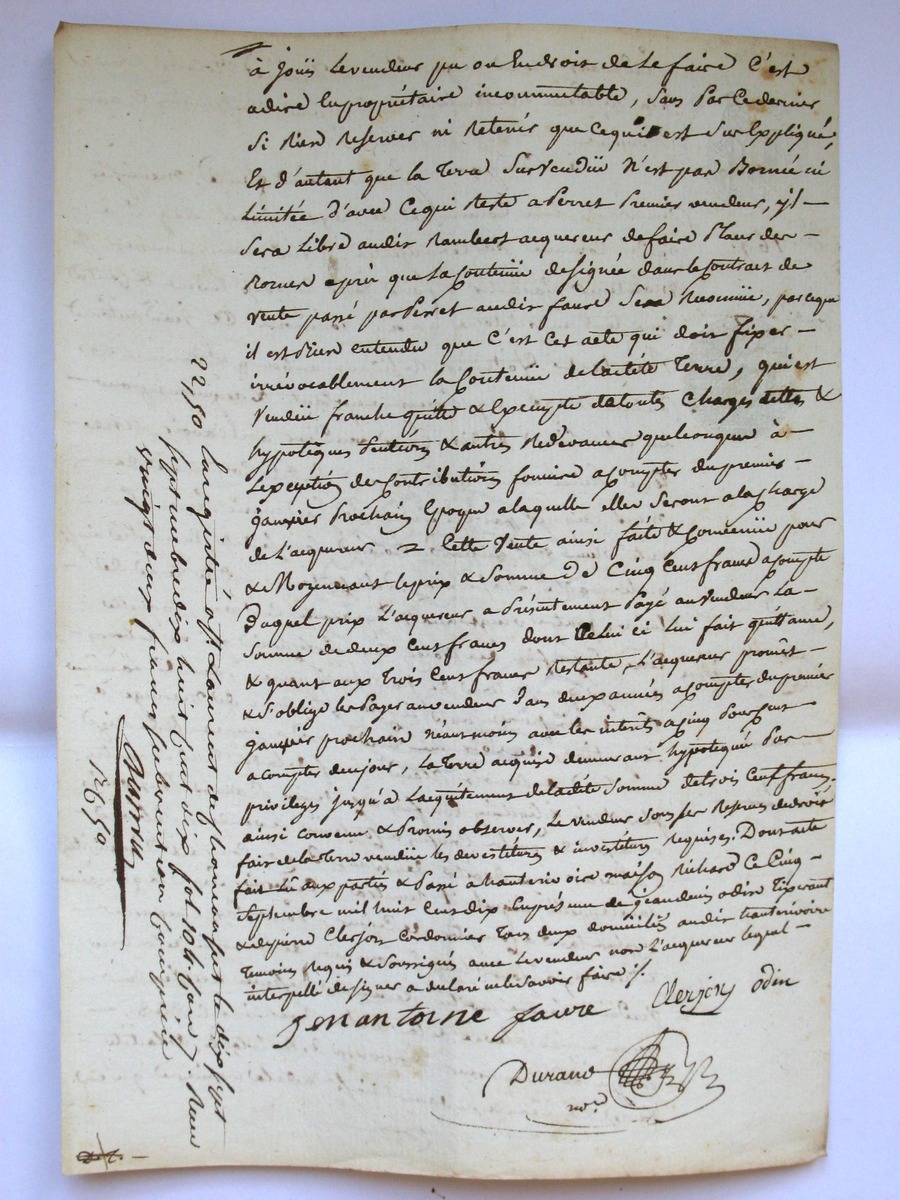 à Joüi Le vendeur pu ou En droit de Le faire C'est
adire En propriétaire incommutable, Sans Par Ce dernier
Si Rien Reserver ni Retenir que Ce qui est Sus Expliqué,
Et d'autant que la Terre Sus Vendüe N'est pas Bornée ni
Limitée d'avec Ce qui Reste a Perret Premier vendeur, il
Sera Libre audit Rambert acquereur de faire Placer des
Bornes après que La Contenüe designée dans le Contrat de
Vente passé par Perret audit faure Sera Reconnüe, parceque
il est Bien entendu que C'est Cet acte qui doit fixer
irrévocablement la Contenüe de la dite Terre, qui est
Vendüe franche quitte & Exempte de toutes Charges dettes &
hypotèques Pentions & autres Redevances quelconques à
L'exception des Contributions fonciere a Compter du premier
janvier Prochain Epoque a laquelle elles Seront a la Charge
de L'acquereur = Cette Vente ainsi faite & Convenüe pour
& Moyennant le prix & Somme De Cinq Cent francs a Compte
Duquel prix L'acquereur a Présentement Payé au Vendeur La
Somme de deux Cent francs dont Celui ci Lui fait quittance,
& quant aux Trois Cent francs Restants, L'acquereur promet
& S'oblige les Payer au vendeur Dans deux années a Compter du premier
janvier prochain Néanmoins avec les interêts a Cinq Pour Cent
a Compter de ce jour, La Terre acquise demeurant hypotequé Par
privilege jusqu'à L'acquitement de la dite Somme de trois Cent francs
ainsi Convenu & Promis observer, Le vendeur Sous les Reserves de droit
fait de la Terre vendüe les devestitures & investitures Requises. Dont acte
fait Lû aux parties & Passé a hauterivoire maison Richard Ce Cinq
Septembre mil huit Cent dix En présence de jean denis odin Tisserant
& de pierre Clerjon Cordonnier Tous deux domiciliés audit hauterivoire
Temoins Requis & Soussignés avec Le vendeur non L'acquereur Lequel
interpellé de signer a declaré ne le Savoir faire ./.
Jean antoine faure Clerjon odin
Durand
no.re
22,50 Enregistré à St. Laurent de Chamousset le dix sept
septembre dix huit cent dix fol. 104. Reçu
vingt deux francs cinquante